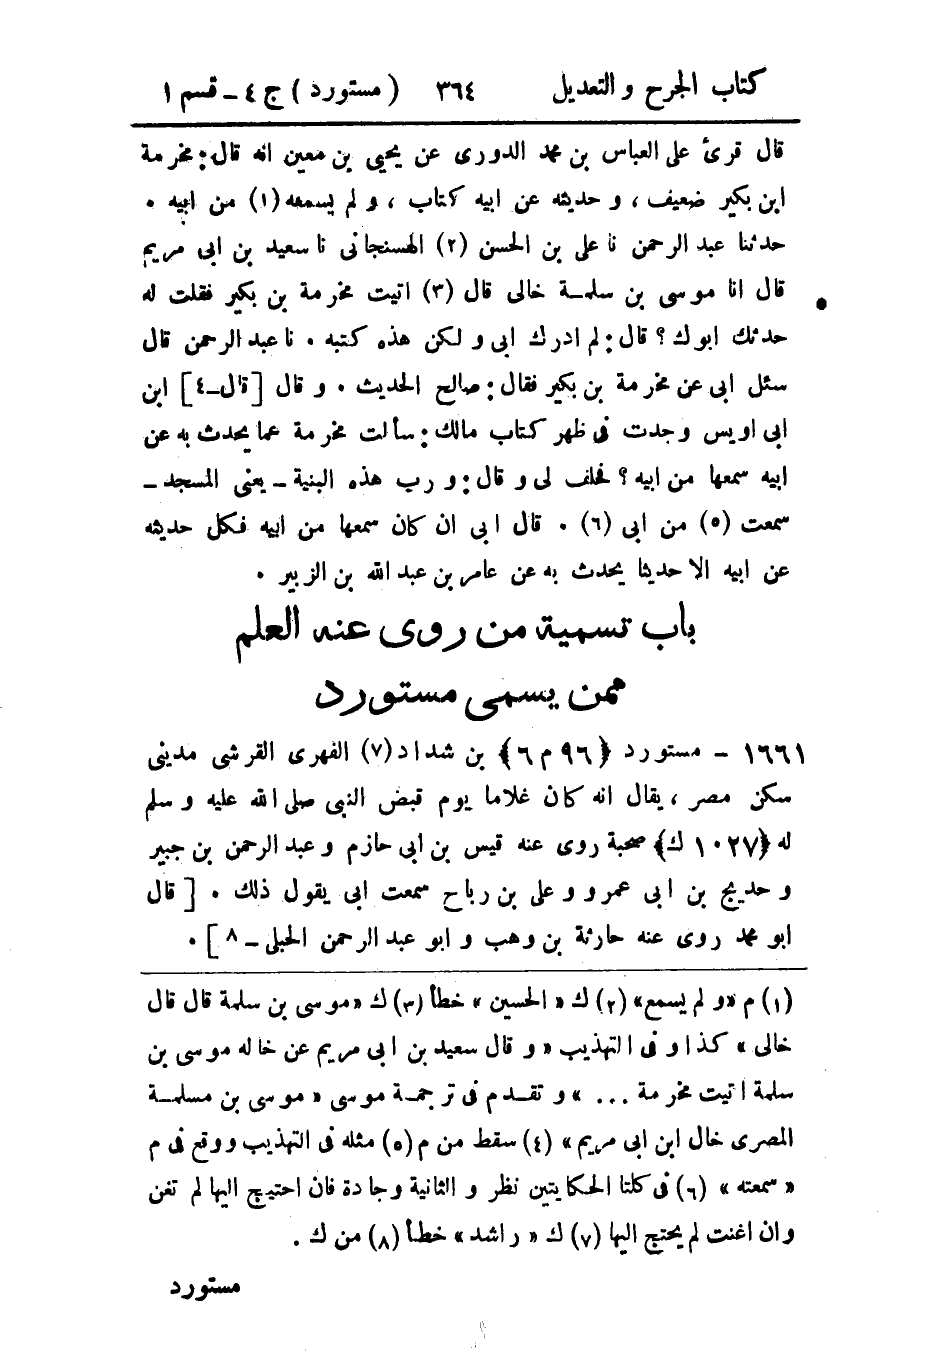 كتاب الجرح و التعديل ٣٦٤ ( مستورد ) ج ٤ - قسم ١
قال قرئ على العباس بن محمد الدورى عن يحيى بن معين انه قال : مخرمة
ابن بكير ضعيف ، و حديثه عن ابيه كتاب ، و لم يسمعه (١) من ابيه .
حدثنا عبد الرحمن نا على بن الحسن (٢) الهسنجانى نا سعيد بن ابى مريم
قال انا موسى بن سلمة خالى قال (٣) اتيت مخرمة بن بكير فقلت له
حدثك ابوك ؟ قال : لم ادرك ابى و لكن هذه كتبه . نا عبد الرحمن قال
سئل ابى عن مخرمة بن بكير فقال : صالح الحديث . و قال [ قال - ٤ ] ابن
ابى اويس وجدت فى ظهر كتاب مالك : سألت مخرمة عما يحدث به عن
ابيه سمعها من ابيه ؟ فحلف لى و قال : و رب هذه البنية - يعنى المسجد -
سمعت (٥) من ابى (٦) . قال ابى ان كان سمعها من ابيه فكل حديثه
عن ابيه الا حديثا يحدث به عن عامر بن عبد الله بن الزبير .
باب تسمية من روى عنه العلم
ممن يسمى مستورد
١٦٦١ - مستورد { ٩٦ م ٦ } بن شداد (٧) الفهرى القرشى مدينى
سكن مصر ، يقال انه كان غلاما يوم قبض النبى صلى الله عليه و سلم
له { ١٠٢٧ ك } صحبة روى عنه قيس بن ابى حازم و عبد الرحمن بن جبير
و حديج بن ابى عمرو و على بن رباح سمعت ابى يقول ذلك . [ قال
ابو محمد روى عنه حارثة بن وهب و ابو عبد الرحمن الحبلى - ٨ ] .
(١) م «و لم يسمع» (٢) ك « الحسين » خطأ (٣) ك «موسى بن سلمة قال قال
خالى » كذا و فى التهذيب « و قال سعيد بن ابى مريم عن خاله موسى بن
سلمة اتيت مخرمة ... » و تقدم فى ترجمة موسى « موسى بن مسلمة
المصرى خال ابن ابى مريم » (٤) سقط من م (٥) مثله فى التهذيب ووقع فى م
« سمعته » (٦) فى كلتا الحكايتين نظر و الثانية وجادة فان احتيج اليها لم تغن
وان اغنت لم يحتج اليها (٧) ك « راشد » خطأ (٨) من ك .
مستورد